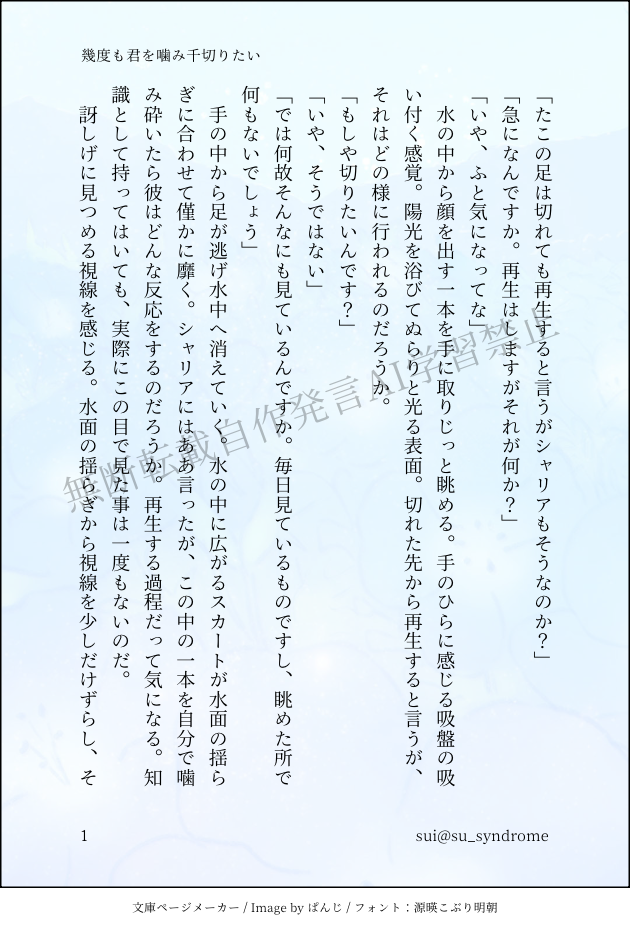 幾度も君を噛み千切りたい
「たこの足は切れても再生すると言うがシャリアもそうなのか？」
「急になんですか。再生はしますがそれが何か？」
「いや、ふと気になってな」
　水の中から顔を出す一本を手に取りじっと眺める。手のひらに感じる吸盤の吸
い付く感覚。陽光を浴びてぬらりと光る表面。切れた先から再生すると言うが、
それはどの様に行われるのだろうか。
「もしや切りたいんです？」
「いや、そうではない」
「では何故そんなにも見ているんですか。毎日見ているものですし、眺めた所で
何もないでしょう」
　手の中から足が逃げ水中へ消えていく。水の中に広がるスカートが水面の揺ら
ぎに合わせて僅かに靡く。シャリアにはああ言ったが、この中の一本を自分で噛
み砕いたら彼はどんな反応をするのだろうか。再生する過程だって気になる。知
識として持ってはいても、実際にこの目で見た事は一度もないのだ。
　訝しげに見つめる視線を感じる。水面の揺らぎから視線を少しだけずらし、そ
無断転載自作発言AI学習禁止
1
sui@su_syndrome
文庫ページメーカー / Image by ぱんじ / フォント：源暎こぶり明朝